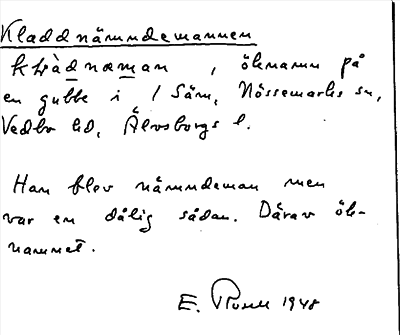 Kladdnämndemannen
öknamn på
en gubbe i Säm, Nössemarks sn,
Vedbo hd, Älvsborgs l.
Han blev nämndeman men
var en dålig sådan. Därav ök-
namnet.
E. 1948